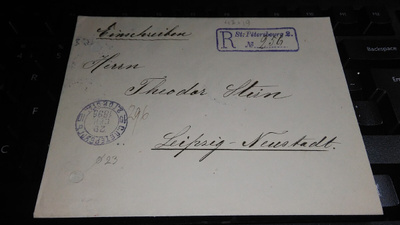 Einschreiben
R St. Petersburg 2.
№ 236
Herrn
Theodor Stein
Leipzig-Neustadt.
1894
Backspace